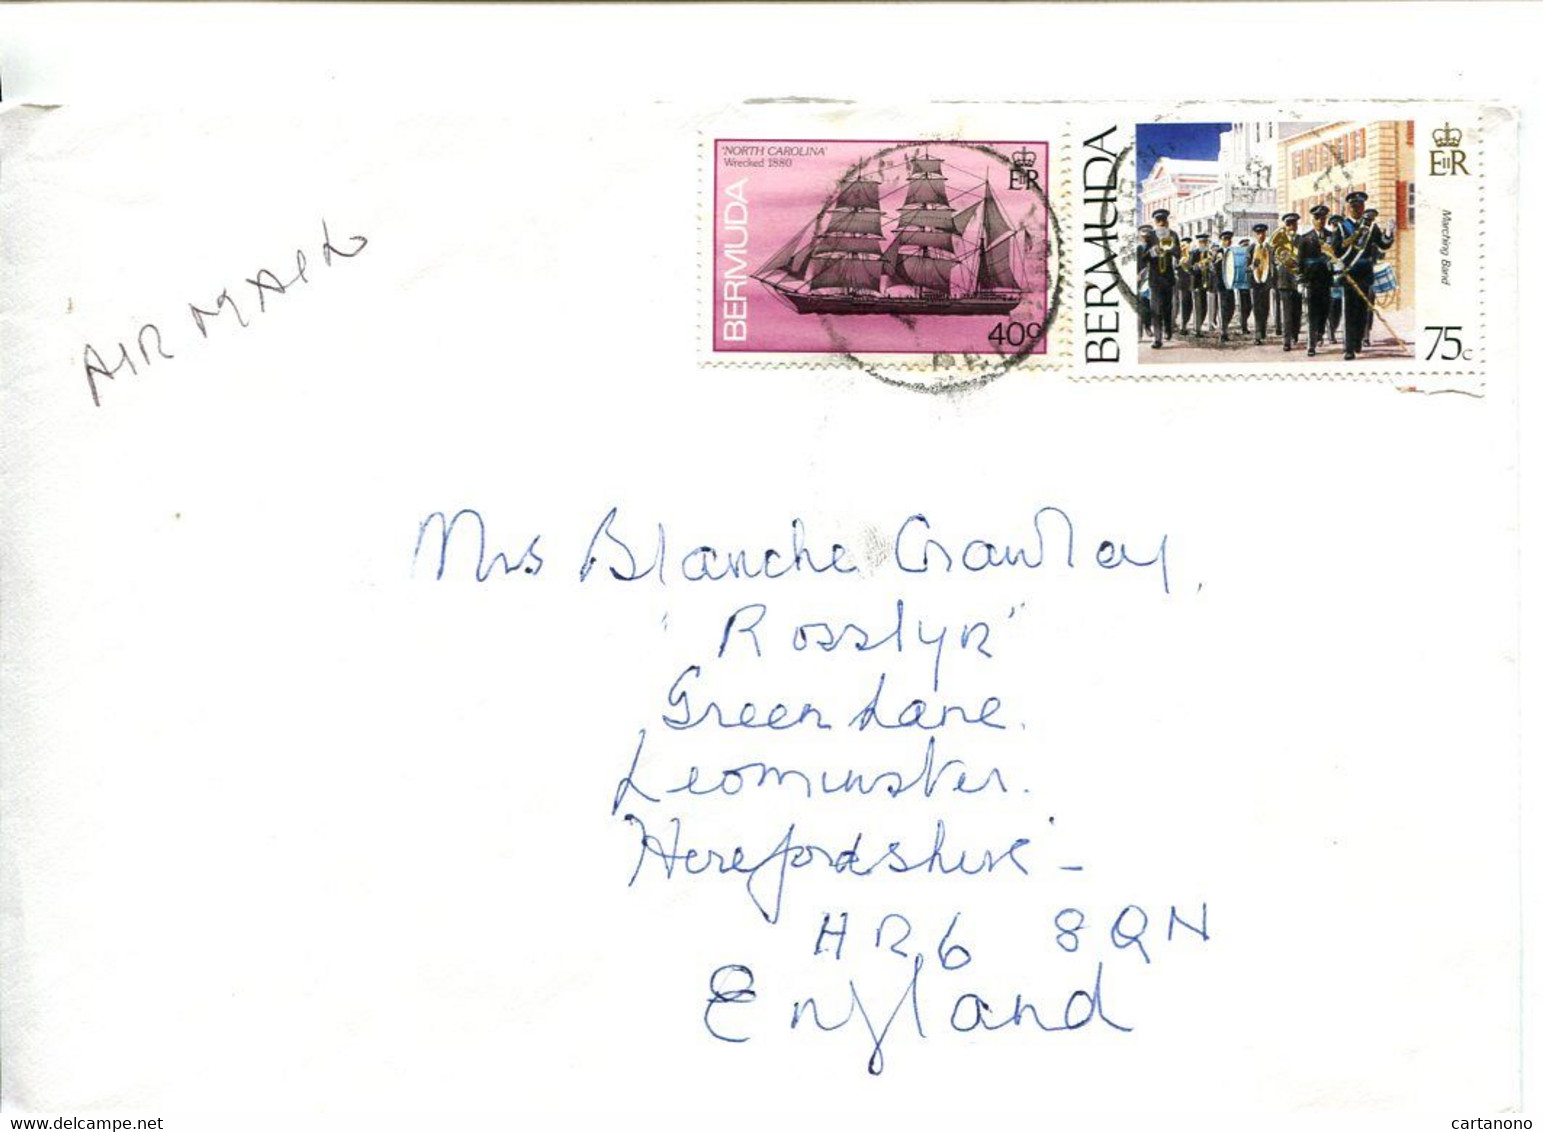 'NORTH CAROLINA'
Wrecked 1880
EIIR
BERMUDA
40c
BERMUDA
EIIR
Marching Band
75c
AIR MAIL
Mrs Blanche Crawley,
"Rosslyn"
Green Lane.
Leominster.
Herefordshire -
HR6 8QN
England
cartanono